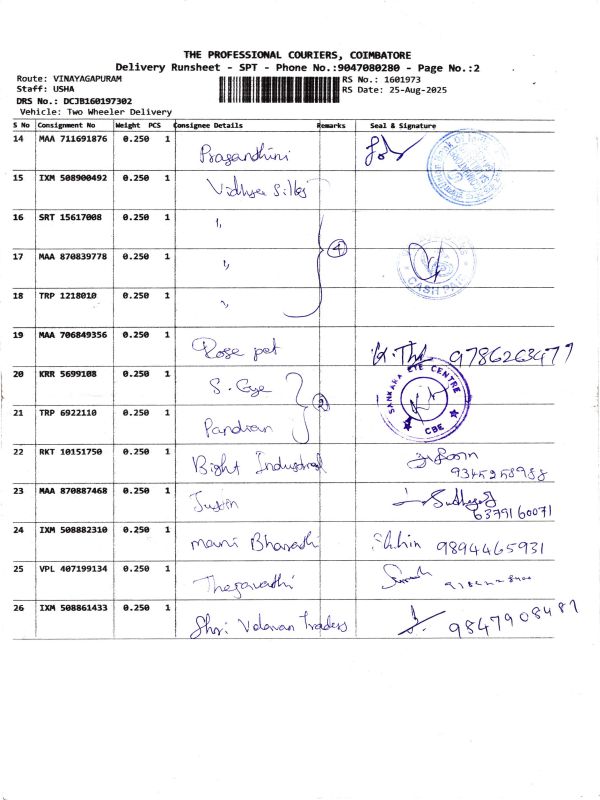 THE PROFESSIONAL COURIERS, COIMBATORE
Delivery Runsheet - SPT - Phone No.:9047080280 - Page No.:2
Route: VINAYAGAPURAM RS No.: 1601973
Staff: USHA RS Date: 25-Aug-2025
DRS No.: DCJB160197302
Vehicle: Two Wheeler Delivery
S No Consignment No Weight PCS Consignee Details Remarks Seal & Signature
14 MAA 711691876 0.250 1
15 IXM 508900492 0.250 1 Vidhya Silks
16 SRT 15617008 0.250 1 "
17 MAA 870839778 0.250 1 " 4 CASH
18 TRP 1218010 0.250 1 "
19 MAA 706849356 0.250 1 Rose pet 9786263477
20 KRR 5699108 0.250 1 S. Eye SANKARA EYE CENTRE CBE
21 TRP 6922110 0.250 1 Pandian 2
22 RKT 10151750 0.250 1 Bight Industrial
23 MAA 870887468 0.250 1 Justin 6379160071
24 IXM 508882310 0.250 1 mani Bharathi 9894465931
25 VPL 407199134 0.250 1
26 IXM 508861433 0.250 1 Shri Velavan Traders 9847908487